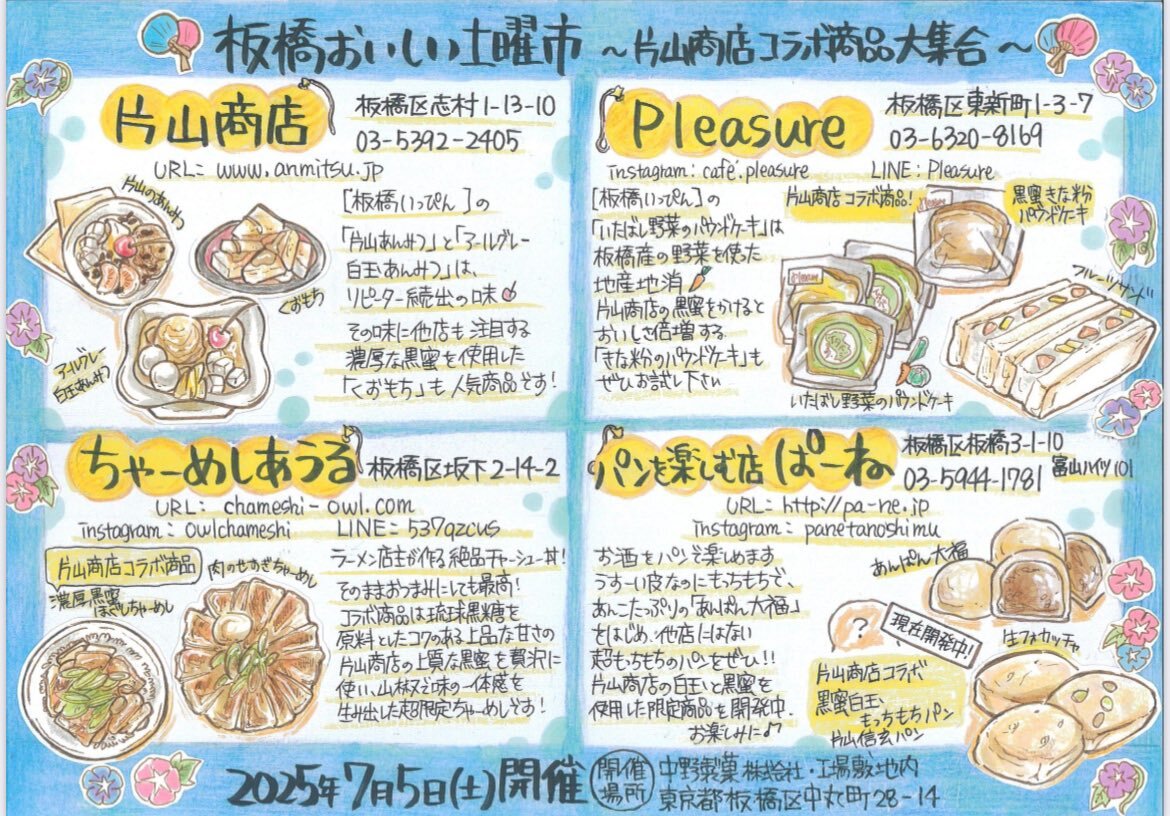 板橋おいしい土曜市 ~片山商店コラボ商品大集合~
片山商店
板橋区志村1-13-10
03-5392-2405
URL: www.anmitsu.jp
片山のあんみつ
くおもち
アールグレー
白玉あんみつ
[板橋いっぴん]の
「片山あんみつ」と「アールグレー
白玉あんみつ」は、
リピーター続出の味
その味に他店も注目する
濃厚な黒蜜を使用した
「くおもち」も人気商品です!
Pleasure
板橋区東新町1-3-7
03-6320-8169
instagram: café.pleasure LINE: Pleasure
[板橋いっぴん]の
「いたばし野菜のパウンドケーキ」は
板橋産の野菜を使った
地産地消
片山商店の黒蜜をかけると
おいしさ倍増する
「きな粉のパウンドケーキ」も
ぜひお試し下さい
片山商店コラボ商品!
黒蜜きな粉
パウンドケーキ
フルーツサンド
いたばし野菜のパウンドケーキ
ちゃーめしあうる
板橋区坂下2-14-2
URL: chameshi-owl.com
instagram: owlchameshi LINE: 537qzcus
片山商店コラボ商品
濃厚黒蜜
ほぐしちゃーめし
肉のせすぎちゃーめし
ラーメン店主が作る絶品チャーシュー丼!
そのままおつまみにしても最高!
コラボ商品は琉球黒糖を
原料としたコクのある上品な甘さの
片山商店の上質な黒蜜を贅沢に
使い、山椒と味の一体感を
生み出した超限定ちゃーめしです!
パンを楽しむ店 ぱーね
板橋区板橋3-1-10
富山ハイツ101
03-5944-1781
URL: http://pa-ne.jp
instagram: panetanoshimu
お酒をパンで楽しめます
うすーい皮なのにもっちもちで、
あんこたっぷりの「あんぱん大福」
をはじめ、他店にはない
超もっちもちのパンをぜひ!!
片山商店の白玉と黒蜜を
使用した限定商品を開発中.
お楽しみに♪
あんぱん大福
?
現在開発中!
生フォカッチャ
片山商店コラボ
黒蜜白玉
もっちもちパン
片山信玄パン
2025年7月5日(土)開催
開催
場所
中野製菓株式会社・工場敷地内
東京都板橋区中丸町28-14